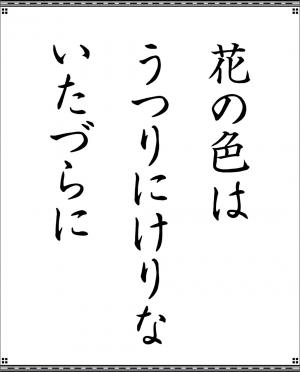 花の色は
うつりにけりな
いたづらに